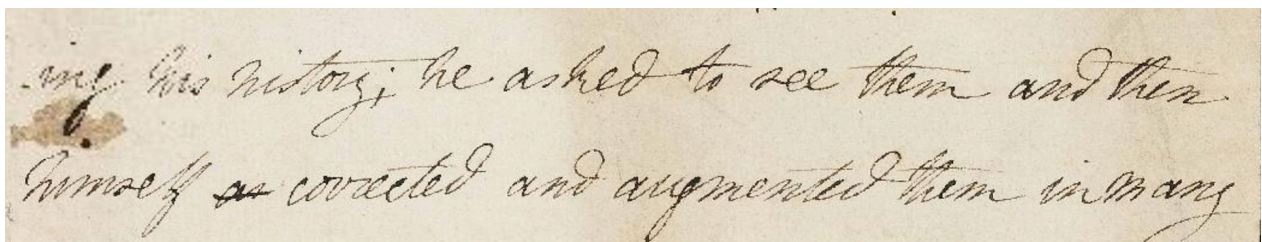 -ing his history; he asked to see them and then
himself corrected and augmented them in many